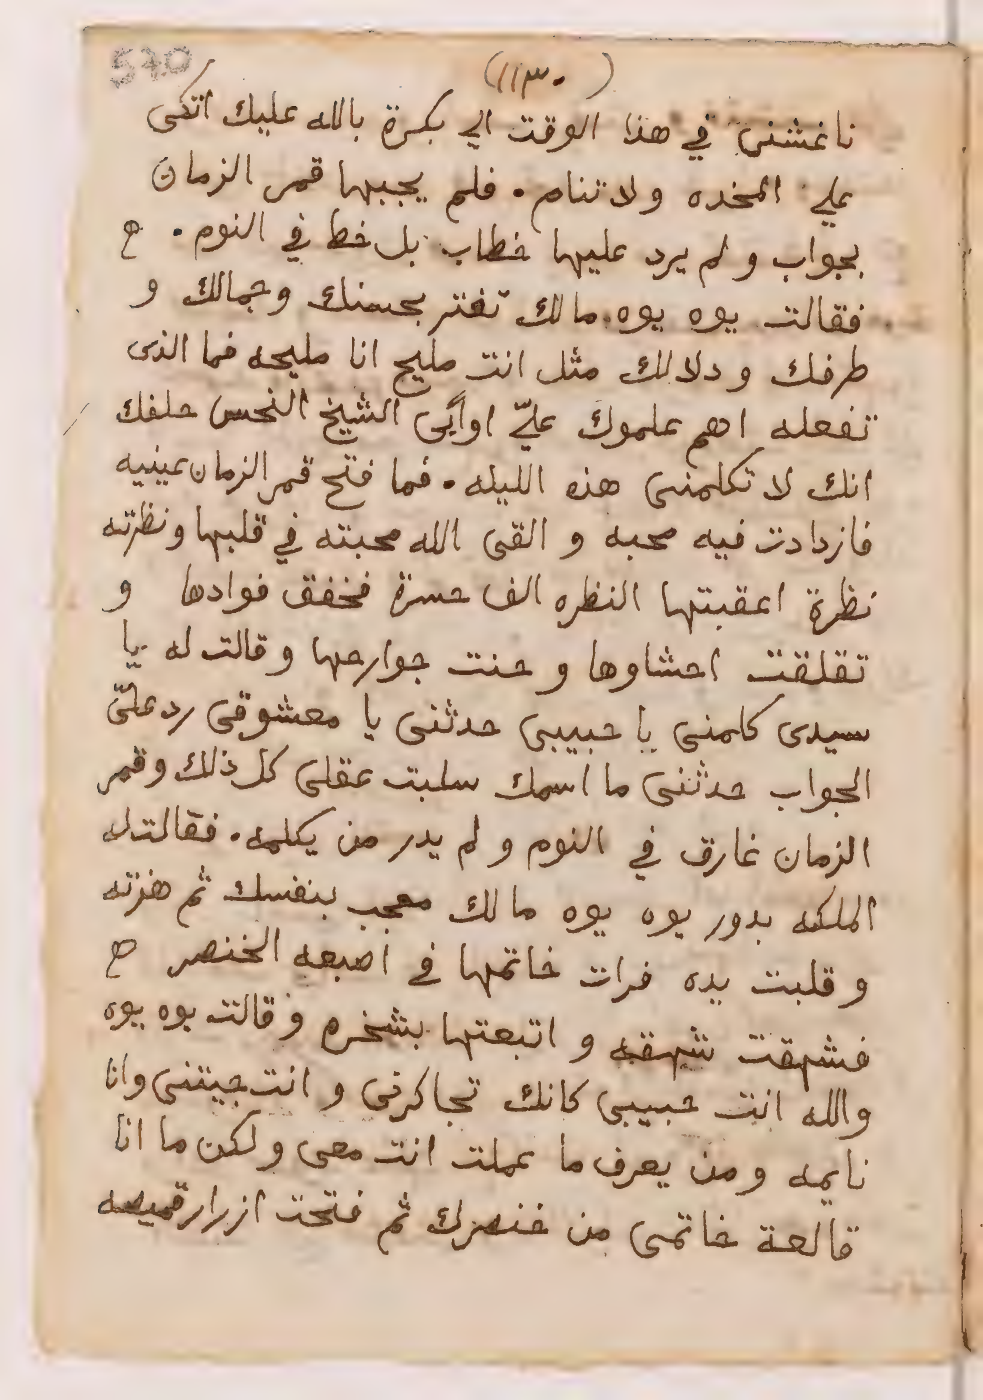 570
(١١٣٠)
ناغشنى في هذا الوقت الي بكرة بالله عليك اتكى
علي المخده ولا تنام . فلم يجيبها قمر الزمان
بجواب و لم يرد عليها خطاب بل خط في النوم .
فقالت يوه يوه مالك تغتر بحسنك وجمالك و
طرفك و دلالك مثل انت مليح انا مليحه فما الذى
تفعله اهم علموك عليّ او ابى الشيخ النحس حلفك
انك لا تكلمنى هذه الليله . فما فتح قمر الزمان عينيه
فازدادت فيه محبه و القى الله محبته في قلبها ونظرته
نظرة اعقبتها النظره الف حسرة فخفق فوادها و
تقلقت احشاوها و حنت جوارحها و قالت له يا
سيدى كلمنى يا حبيبى حدثنى يا معشوقى رد علىّ
الجواب حدثنى ما اسمك سلبت عقلى كل ذلك وقمر
الزمان غارق في النوم و لم يدر من يكلمه . فقالت له
الملكه بدور يوه يوه مالك معجب بنفسك ثم هزته
و قلبت يده فرات خاتمها في اصبعه الخنصر
فشهقت شهقه و اتبعتها بشخره وقالت يوه يوه
والله انت حبيبى كانك تجاكرنى و انت جيتنى وانا
نايمه و من يعرف ما عملت انت معى و لكن ما انا
قالعة خاتمى من خنصرك ثم فتحت ازرار قميصه